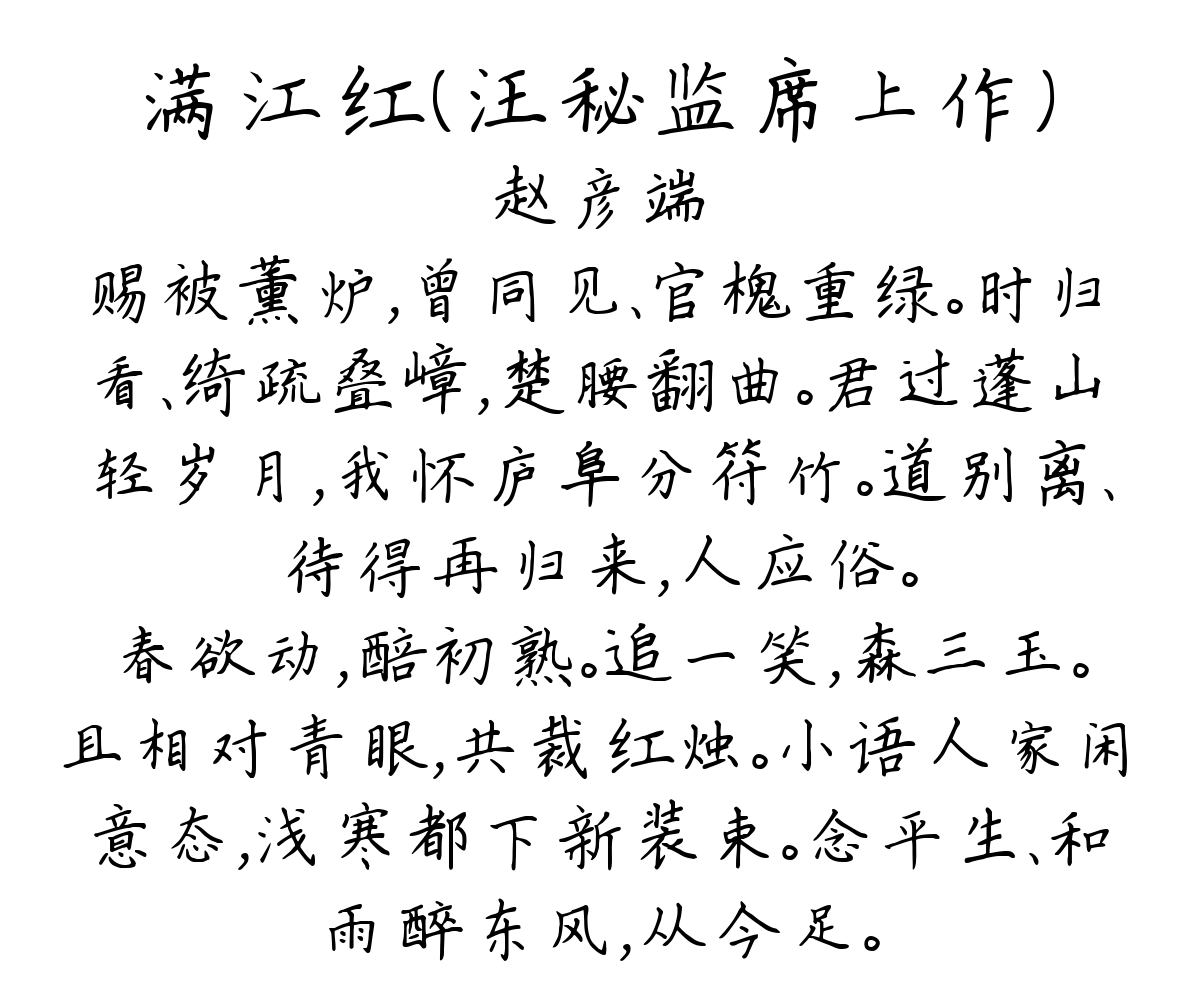 满江红(汪秘监席上作)
赵彦端
赐被薰炉,曾同见、官槐重绿。时归
看、绮疏叠嶂,楚腰翻曲。君过蓬山
轻岁月,我怀庐阜分符竹。道别离、
待得再归来,人应俗。
春欲动,醅初熟。追一笑,森三玉。
且相对青眼,共裁红烛。小语人家闲
意态,浅寒都下新装束。念平生、和
雨醉东风,从今足。